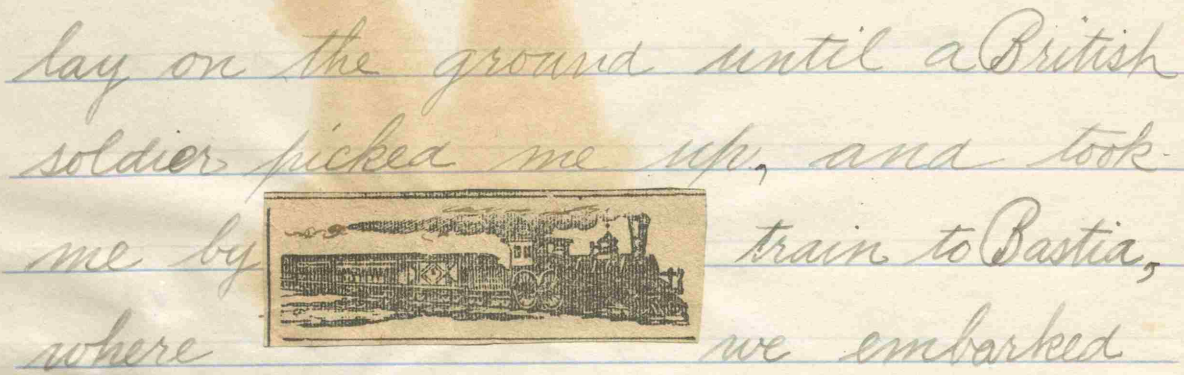 lay on the ground until a British
soldier picked me up, and took
me by train to Bastia,
where we embarked